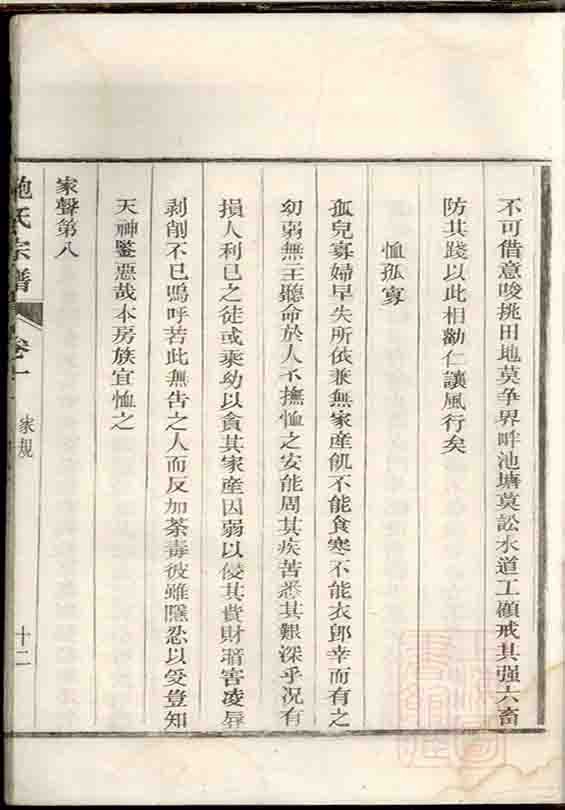 不可借意唆挑田地莫争界畔池塘莫訟水道工傾戒其强六畜
防其踐以此相勸仁讓風行矣
恤孤寡
孤兒寡婦早失所依兼無家産飢不能食寒不能衣卽幸而有之
幼弱無主聽命於人不撫恤之安能周其疾苦悉其艱深乎況有
損人利已之徒或乘幼以貪其家産因弱以侵其貲財暗害凌辱
剥削不已嗚呼苦此無告之人而反加荼毒彼雖隱忍以受豈知
天神鑒惡哉本房族宜恤之
家聲第八
鮑氏宗譜
卷十一
家規
十二